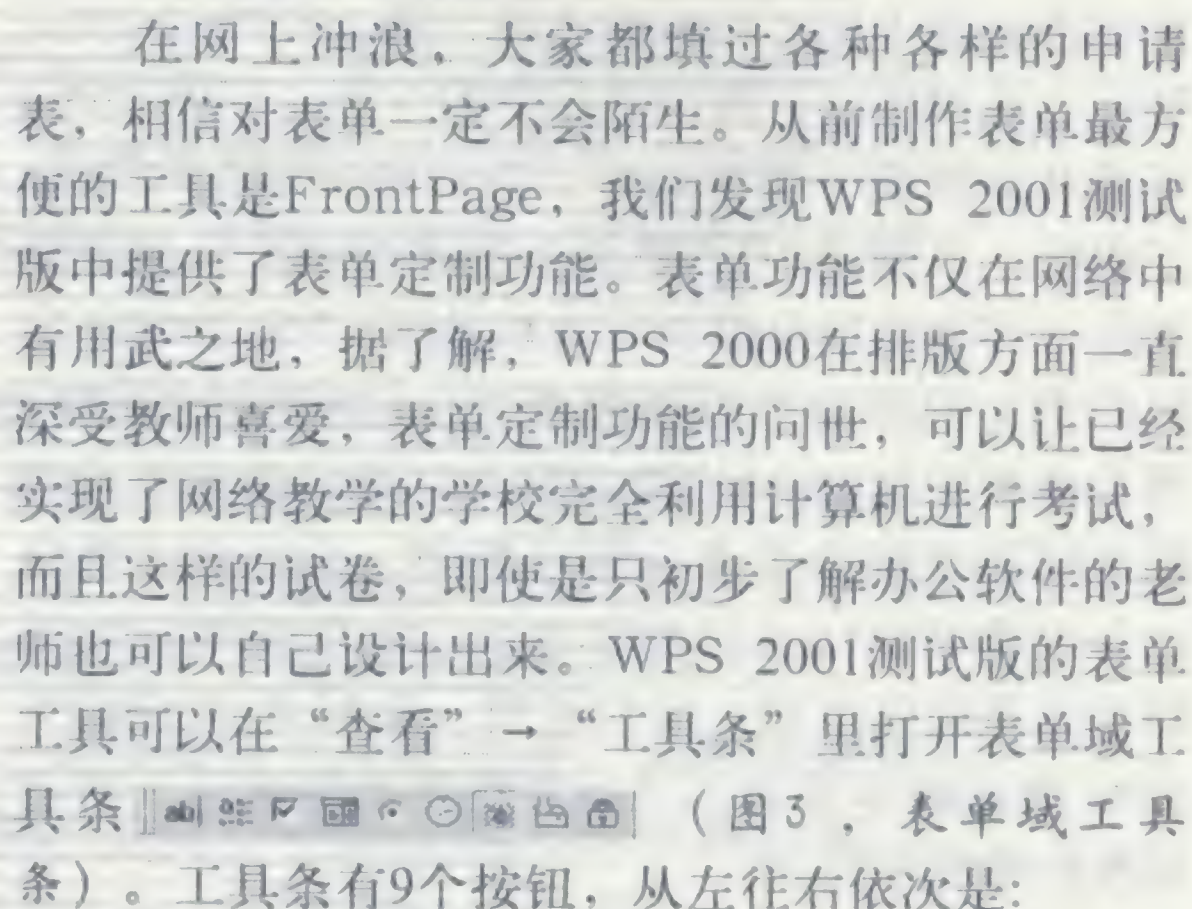 在网上冲浪，大家都填过各种各样的申请
表，相信对表单一定不会陌生。从前制作表单最方
便的工具是FrontPage，我们发现WPS 2001测试
版中提供了表单定制功能。表单功能不仅在网络中
有用武之地，据了解，WPS 2000在排版方面一直
深受教师喜爱，表单定制功能的问世，可以让已经
实现了网络教学的学校完全利用计算机进行考试，
而且这样的试卷，即使是只初步了解办公软件的老
师也可以自己设计出来。WPS 2001测试版的表单
工具可以在“查看”→“工具条”里打开表单域工
具条 ab （图3，表单域工具
条）。工具条有9个按钮，从左往右依次是: